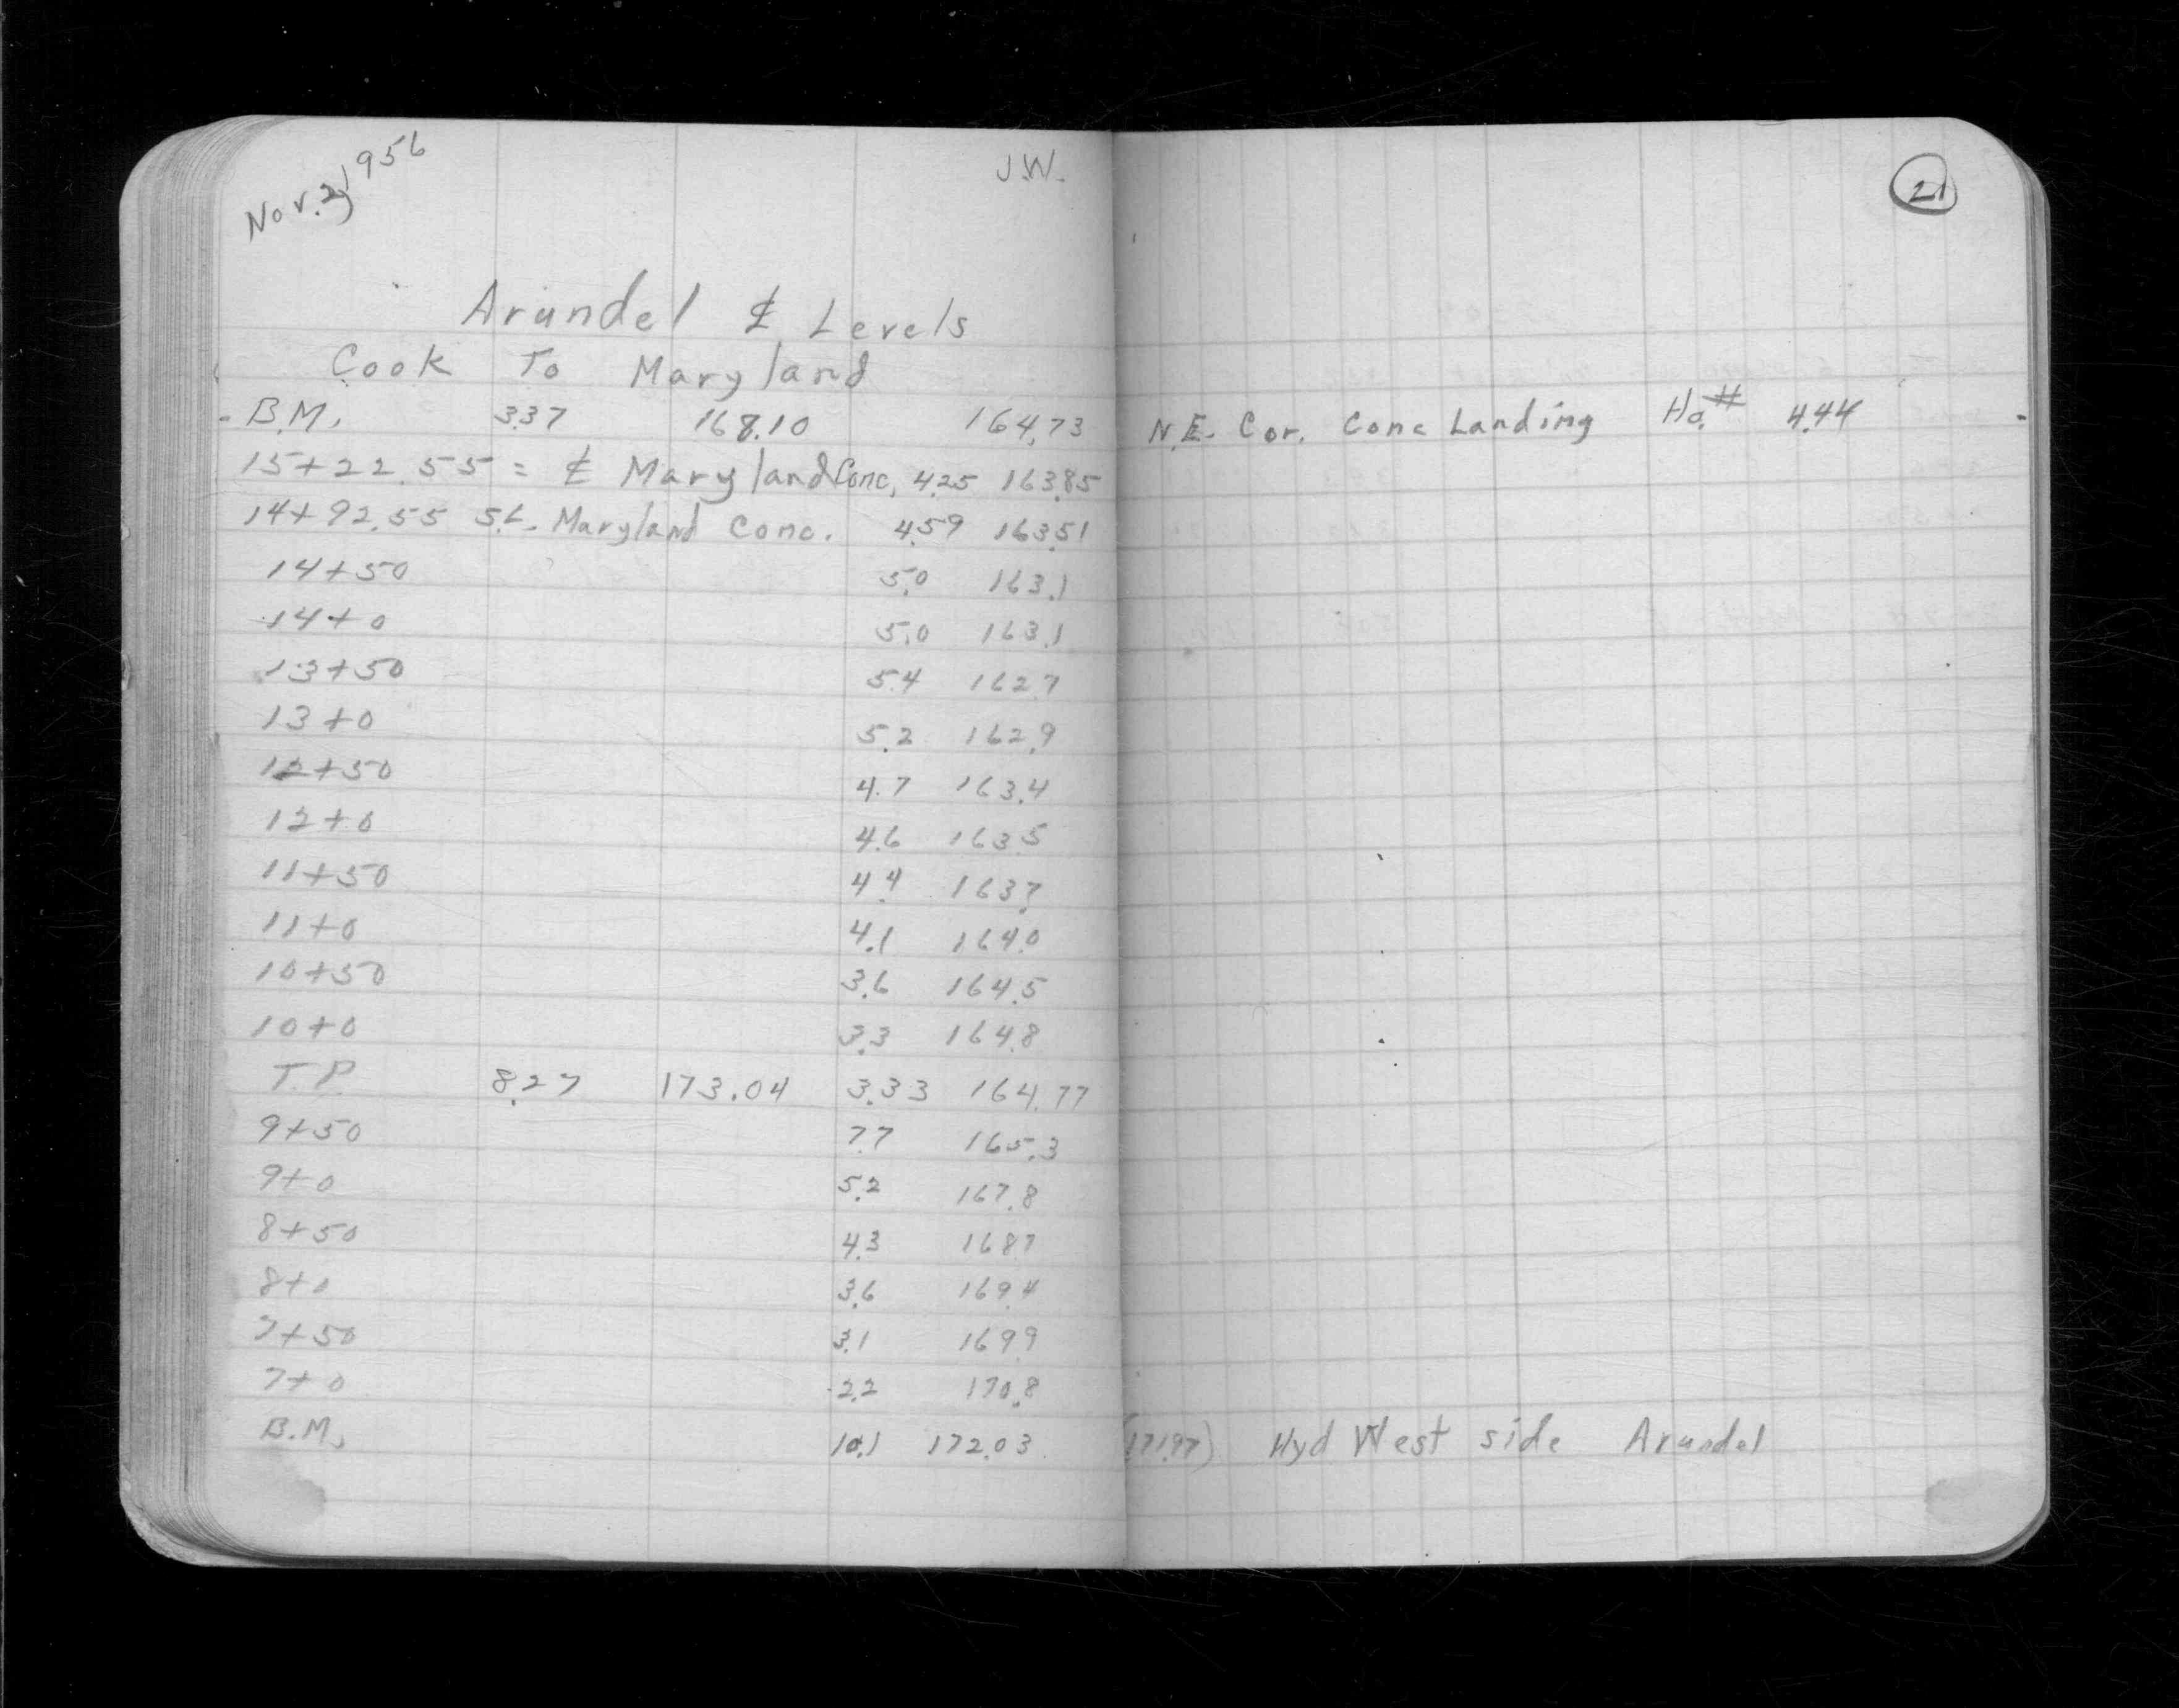 Nov. 2, 1956 J.W. 21
Arundel ℄ Levels
Cook To Maryland
B.M. 3.37 168.10 164.73 N.E. Cor. Conc Landing Ho.# 444
15+22.55 = ℄ Maryland Conc. 4.25 163.85
14+92.55 S.L. Maryland Conc. 4.59 163.51
14+50 5.0 163.1
14+0 5.0 163.1
13+50 5.4 162.7
13+0 5.2 162.9
12+50 4.7 163.4
12+0 4.6 163.5
11+50 4.4 163.7
11+0 4.1 164.0
10+50 3.6 164.5
10+0 3.3 164.8
T.P. 8.27 173.04 3.33 164.77
9+50 7.7 165.3
9+0 5.2 167.8
8+50 4.3 168.7
8+0 3.6 169.4
7+50 3.1 169.9
7+0 2.2 170.8
B.M. 172.03 (171.97) Hyd West side Arundel